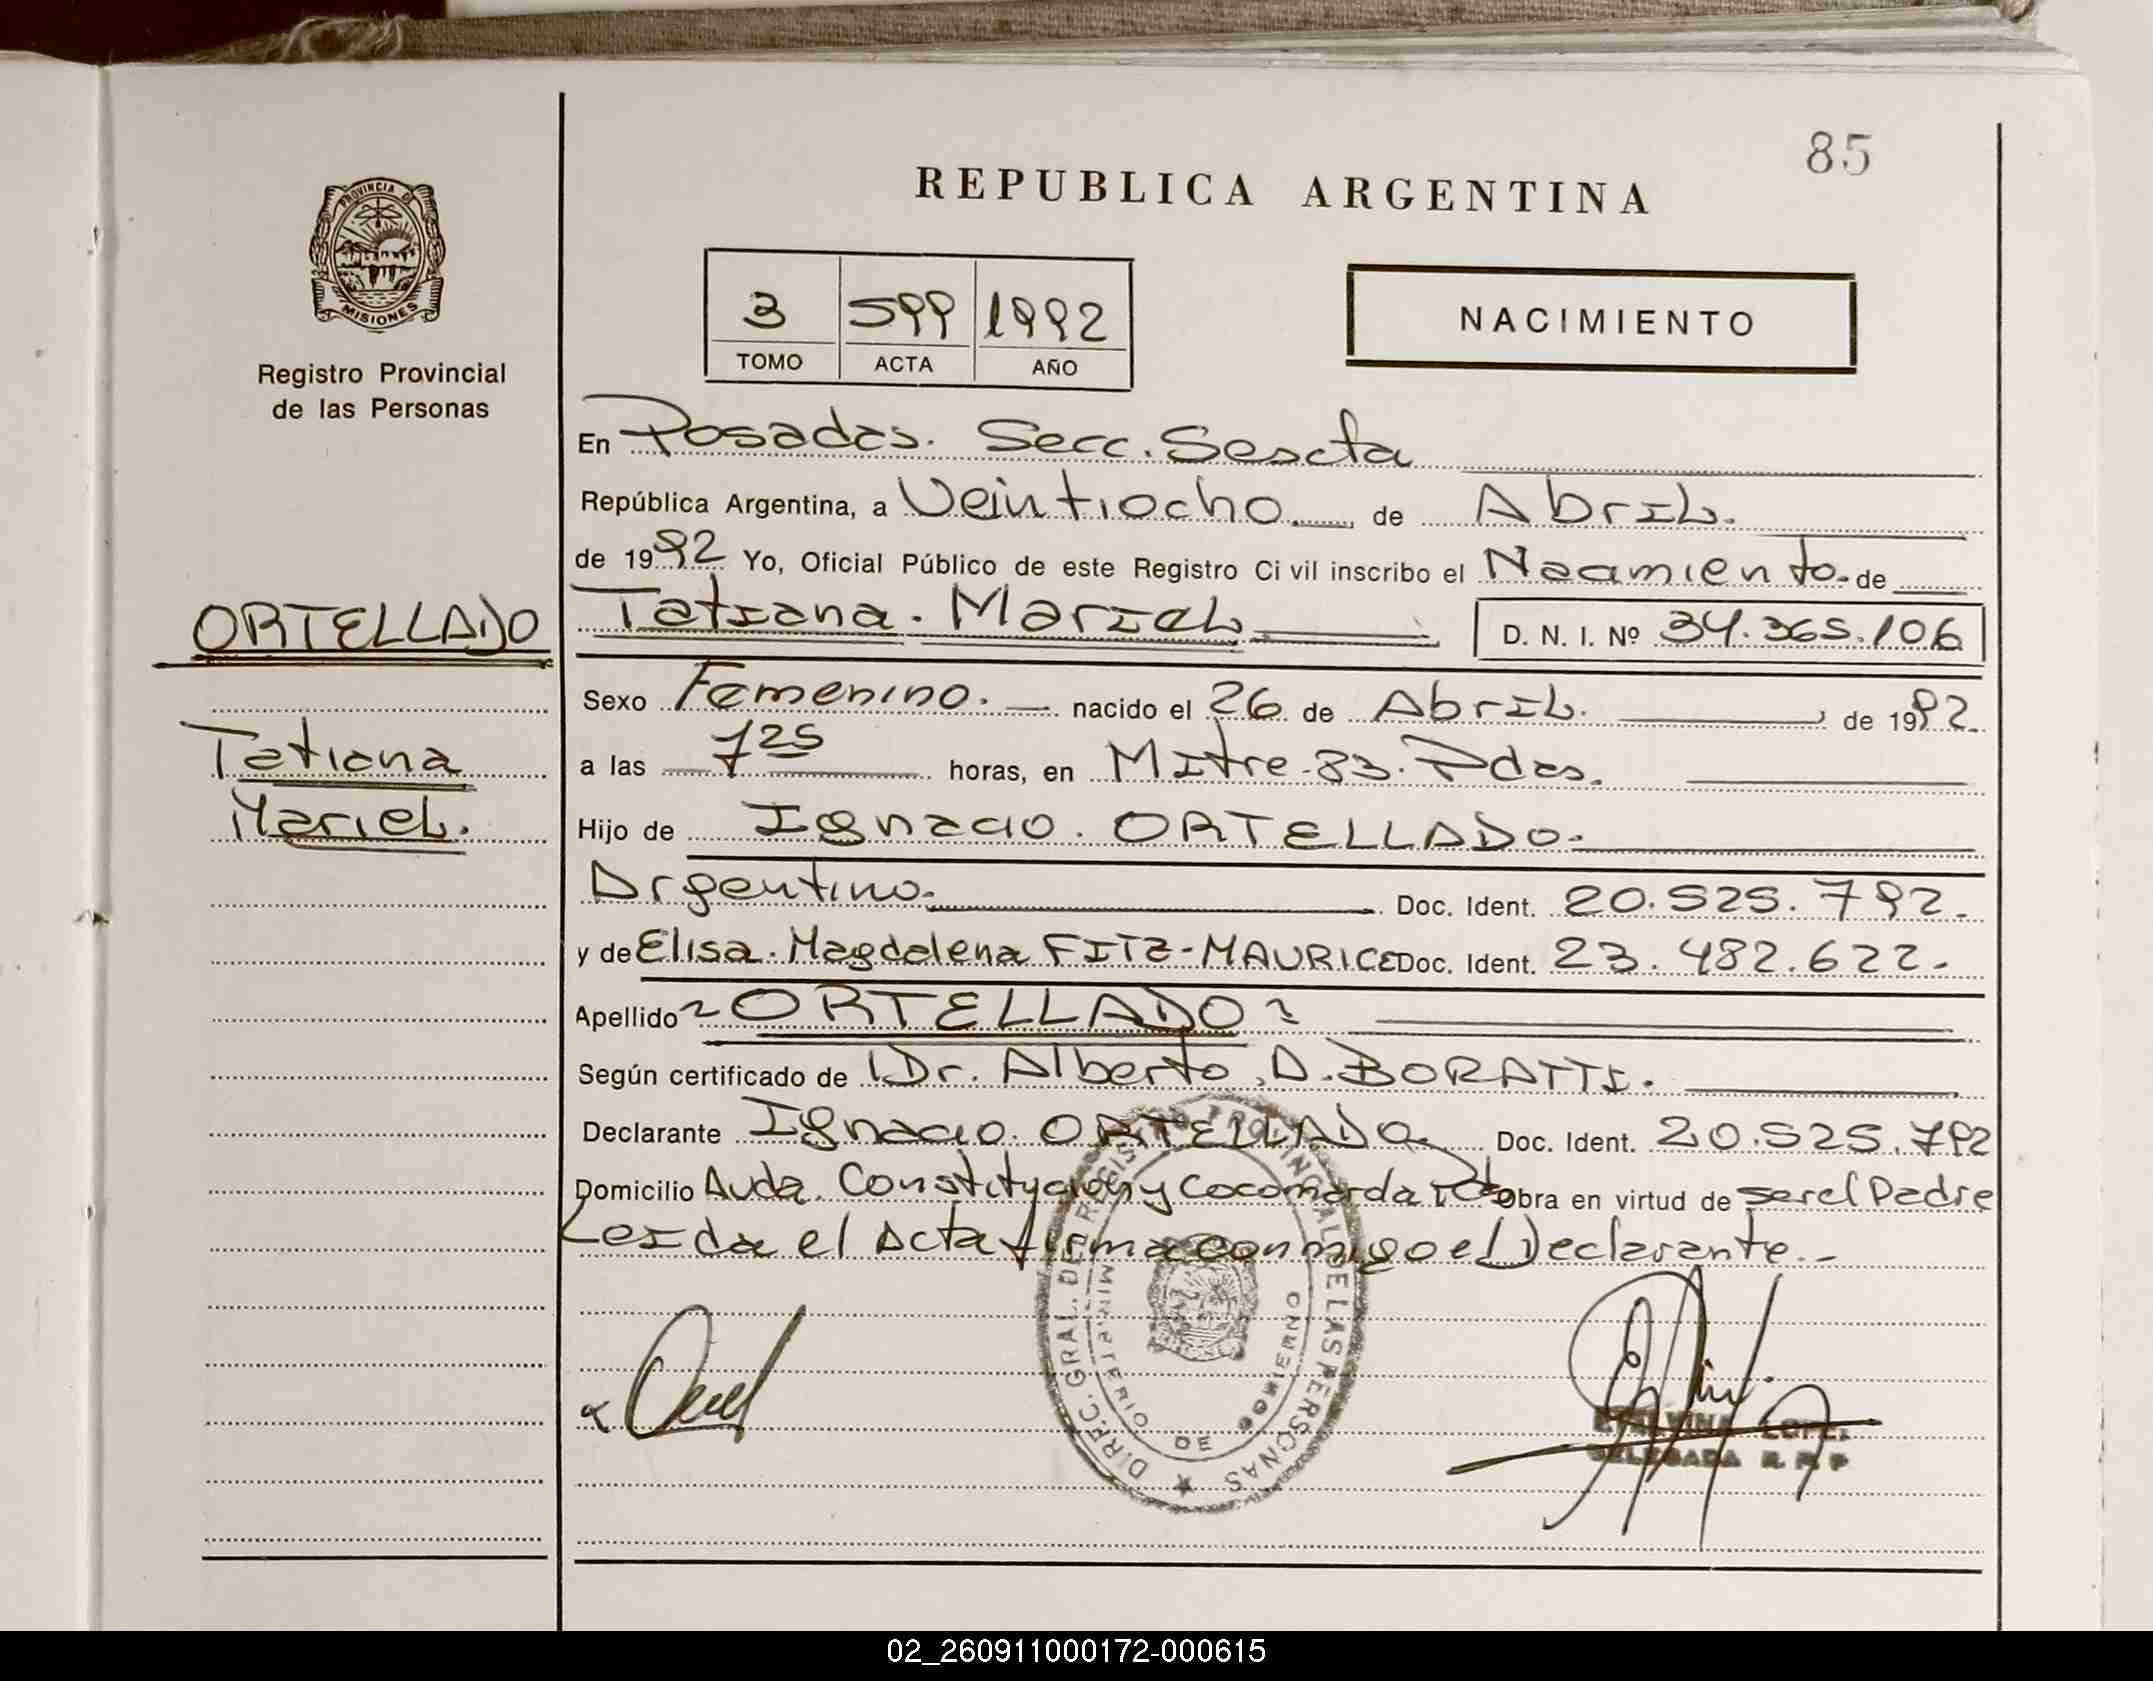 85
REPUBLICA ARGENTINA
PROVINCIA DE
MISIONES
Registro Provincial
de las Personas
3 599 1992
TOMO ACTA AÑO
NACIMIENTO
En Posadas. Secc. Sescta
República Argentina, a Veintiocho de Abril.
de 1992 Yo, Oficial Público de este Registro Civil inscribo el Nacimiento. de
ORTELLADO
Tatiana. Mariel
D. N. I. Nº 34.365.106
Sexo Femenino. — nacido el 26 de Abril. de 1992.
Tatiana
Mariel.
a las 7 25 horas, en Mitre. 83. Pdas.
Hijo de Ignacio. ORTELLADO.
Argentino. Doc. Ident. 20.525.792.
y de Elisa. Magdalena FITZ-MAURICE Doc. Ident. 23.482.622.
Apellido ORTELLADO
Según certificado de Dr. Alberto, A. BORATTI.
Declarante Ignacio. ORTELLADO. Doc. Ident. 20.525.792
Domicilio Avda. Constitución y Cocomarola Obra en virtud de ser el Padre
Leida el Acta firma conmigo el Declarante.-
DIREC. GRAL. DEL REGISTRO PROVINCIAL DE LAS PERSONAS
MINISTERIO DE GOBIERNO
LOPEZ
DELEGADA R. P. P
02_260911000172-000615